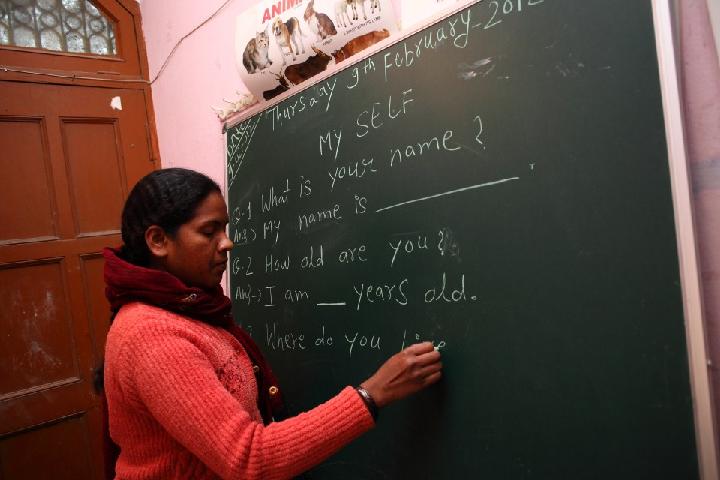 ANIM
Thursday 9th February-2012
My SELF
Q.1 What is your name?
Ans:) My name is ________.
Q.2 How old are you?
Ans:-) I am __ years old.
Where do you live